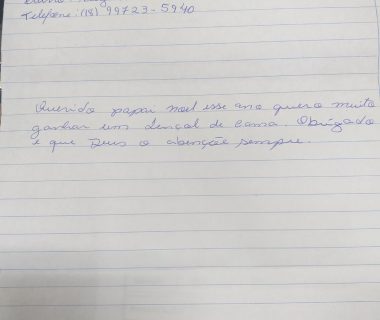 Telefone: (18) 99723-5940
Querido papai noel esse ano quero muito
ganhar um lençol de cama. Obrigado
e que Deus o abençõe sempre.